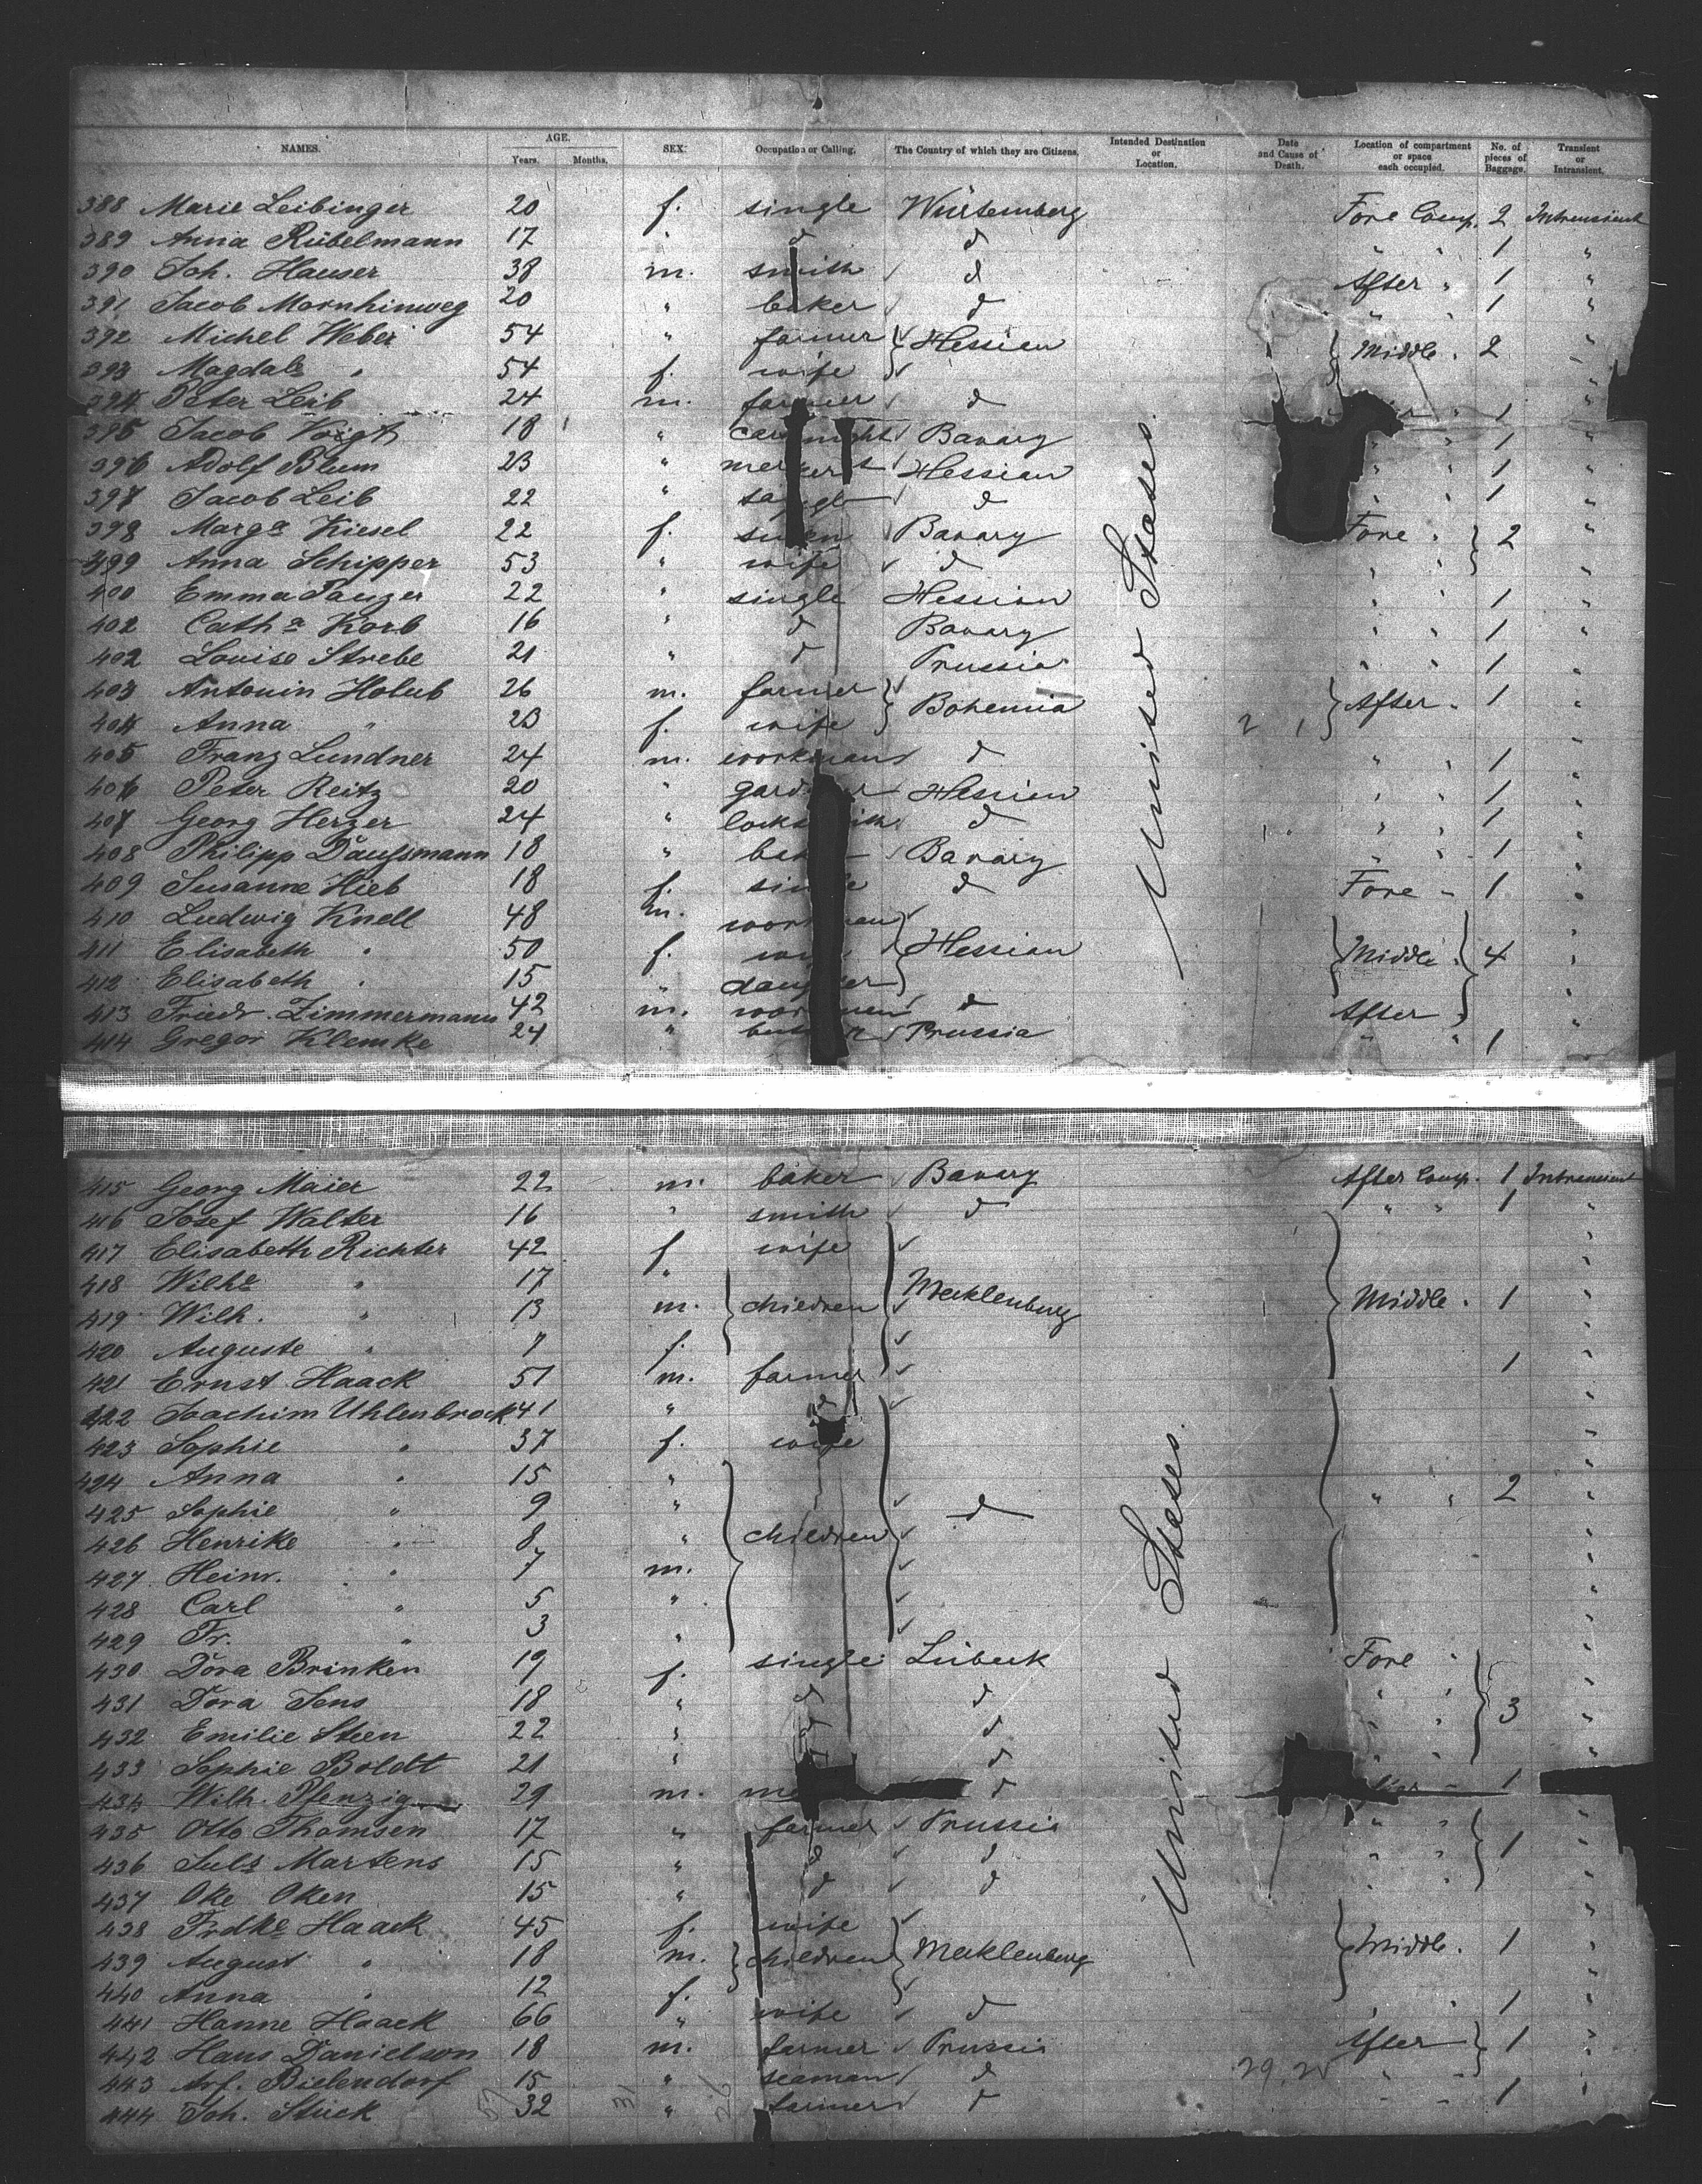 NAMES. AGE. Years. Months. SEX. Occupation or Calling. The Country of which they are Citizens. Intended Destination or Location. Date and Cause of Death. Location of compartment or space each occupied. No. of pieces of Baggage. Transient or Intransient.
388 Marie Leibinger 20 f. single Würtemberg Fore Comp. 2 Intransient
389 Anna Rübelmann 17 " d d " " 1 "
390 Joh. Hauser 38 m. smith d After " 1 "
391 Jacob Mornhinweg 20 " baker d " " 1 "
392 Michel Weber 54 " farmer Hessian Middle " 2 "
393 Magdale " 54 f. wife "
394 Peter Leib 24 m. farmer d " 1 "
395 Jacob Voigt 18 " Bavary " " 1 "
396 Adolf Blum 23 " Hessian " " 1 "
397 Jacob Leib 22 " d " " 1 "
398 Marga Kiesel 22 f. Bavary Fore " 2 "
399 Anna Schipper 53 " wife d " " "
400 Emma Panzer 22 " single Hessian " " 1 "
402 Catha Korb 16 " d Bavary " " 1 "
402 Louise Strebe 21 " d Prussia " " 1 "
403 Antonin Holub 26 m. farmer Bohemia After " 1 "
404 Anna " 23 f. wife 2 1 "
405 Franz Lundner 24 m. workman d " " 1 "
406 Peter Reitz 20 " gard r Hessian " " 1 "
407 Georg Herzer 24 " locks ith d " " 1 "
408 Philipp Daussmann 18 " ba Bavary " " 1 "
409 Susanne Hieb 18 f. sin e d Fore " 1 "
410 Ludwig Knell 48 m. wor man
411 Elisabeth " 50 f. wi Hessian Middle " 4 "
412 Elisabeth " 15 " daug er "
413 Friedr. Zimmermann 42 m. wor men d After "
414 Gregor Klemke 24 " Prussia " " 1
United States.
415 Georg Maier 22 m. baker Bavary After Comp. 1 Intransient
416 Josef Walter 16 " smith d " " 1 "
417 Elisabeth Richter 42 f wife "
418 Wilhe " 17 " "
419 Wilh. " 13 m. children Mecklenburg Middle " 1 "
420 Auguste " 7 f. "
421 Ernst Haack 51 m. farmer 1 "
422 Joachim Uhlenbrock 41 " d "
423 Sophie " 37 f. wife "
424 Anna " 15 " "
425 Sophie " 9 " d " " 2 "
426 Henrike " 8 " children "
427 Heinr. " 7 m. "
428 Carl " 5 " "
429 Fr. " 3 " "
430 Dora Brinken 19 f. single Lübeck Fore " "
431 Dora Jens 18 " d d " " 3 "
432 Emilie Steen 22 " d d " " "
433 Sophie Boldt 21 " d " " "
434 Wilh. Pfenzig 29 m. me d 1
435 Otto Thomsen 17 " farmer Prussia " " "
436 Juls Martens 15 " d d " " 1 "
437 Oke Oken 15 " d d " " "
438 Frdke Haack 45 f. wife "
439 August " 18 m. children Mecklenburg Middle. 1 "
440 Anna " 12 f. "
441 Hanne Haack 66 " wife d " " 1 "
442 Hans Danielson 18 m. farmer Prussia After 1 "
443 Bielendorf 15 " seaman d " " "
444 Joh. Stück 32 " farmer d " " 1 "
United States.